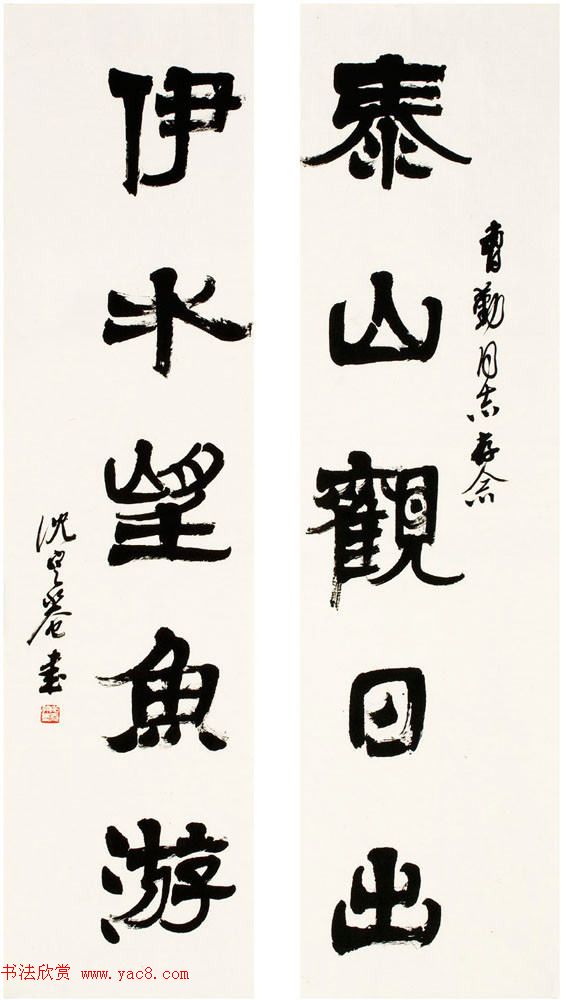 曹勤同志存念
泰山觀日出
伊水望魚游
沈定庵書
书法欣赏 www.yac8.com